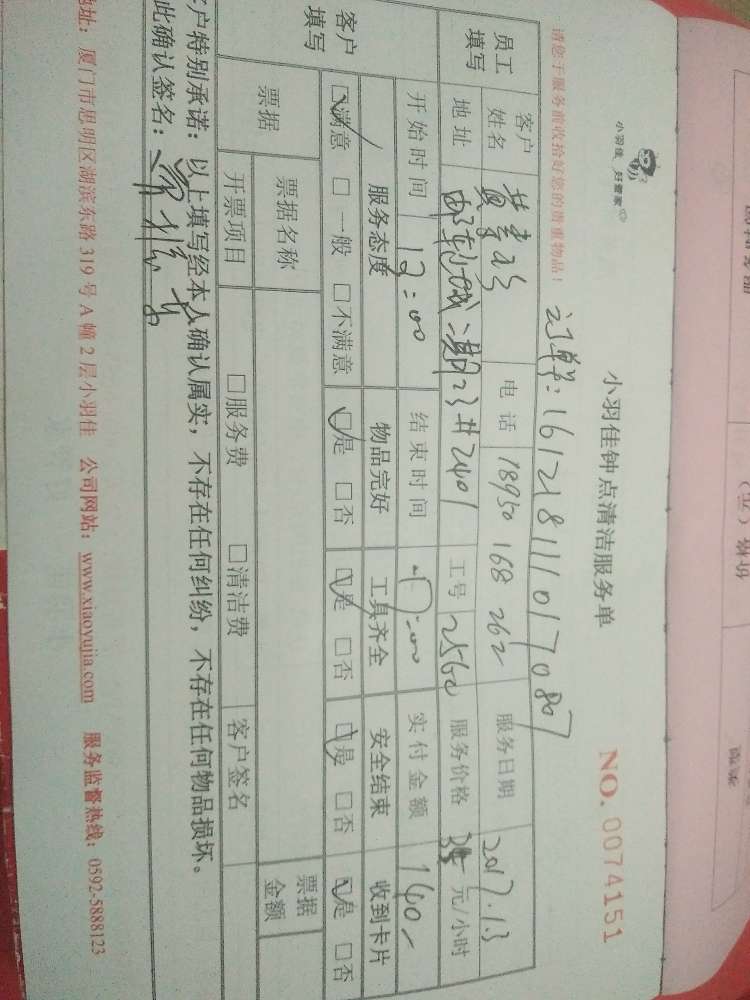 小羽佳 好管家
小羽佳钟点清洁服务单
NO. 0074151
请您于服务前收拾好您的贵重物品！
订单号：161218111017087
员工填写 客户姓名 电话 18950 168 262 服务日期 2017.1.3
地址 二期23#2401 工号 服务价格 35 元/小时
开始时间 12:00 结束时间 实付金额 140
客户填写 服务态度 物品完好 工具齐全 安全结束 收到卡片
☑满意 □一般 □不满意 ☑是 □否 ☑是 □否 ☑是 □否 ☑是 □否
票据 票据名称 票据金额
开票项目 □服务费 □清洁费 客户签名
户特别承诺：以上填写经本人确认属实，不存在任何纠纷，不存在任何物品损坏。
此确认签名：
址：厦门市思明区湖滨东路 319 号 A 幢 2 层小羽佳 公司网站：www.xiaoyujia.com 服务监督热线：0592-5888123